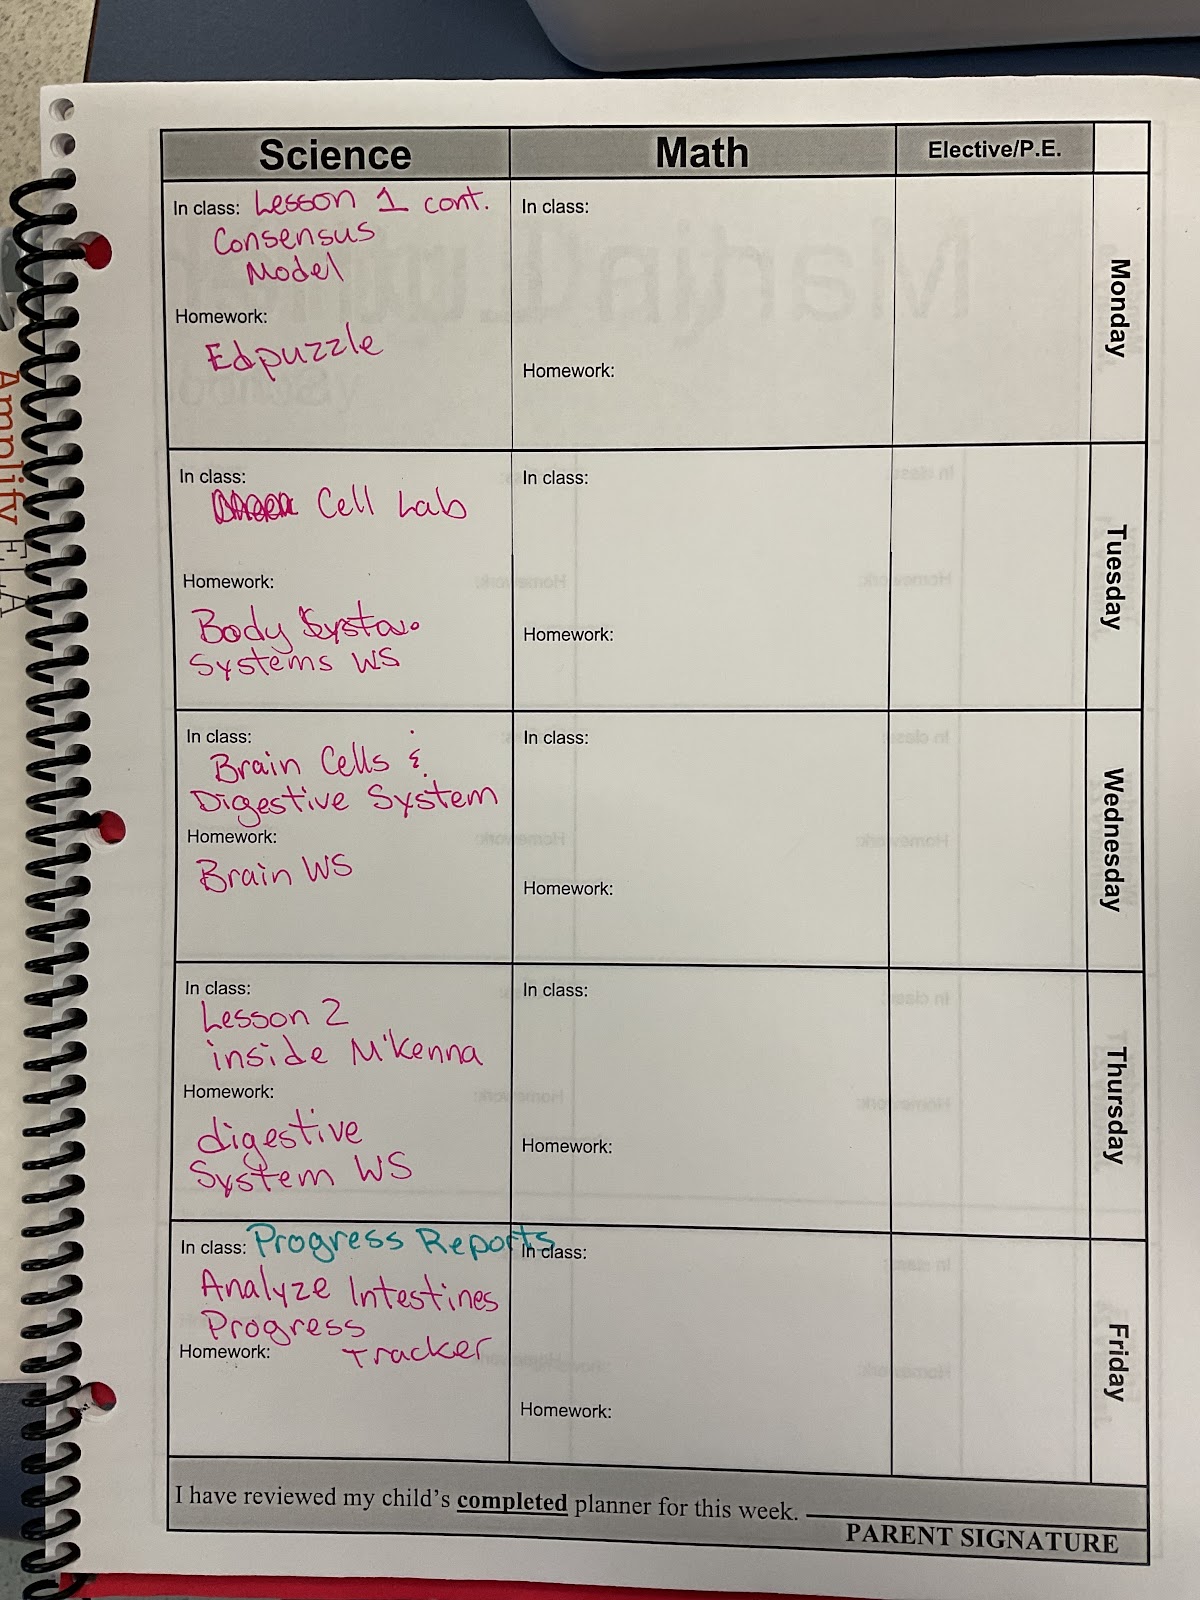 Science
Math
Elective/P.E.
Monday
In class: Lesson 1 cont.
Consensus
Model
Homework:
Edpuzzle
In class:
Homework:
Tuesday
In class:
Cell Lab
Homework:
Body
Systems WS
In class:
Homework:
Wednesday
In class:
Brain Cells &
Digestive System
Homework:
Brain WS
In class:
Homework:
Thursday
In class:
Lesson 2
inside M'Kenna
Homework:
digestive
System WS
In class:
Homework:
Friday
In class: Progress Reports
Analyze Intestines
Progress
Tracker
Homework:
In class:
Homework:
I have reviewed my child's completed planner for this week.
PARENT SIGNATURE
Amplify ELA